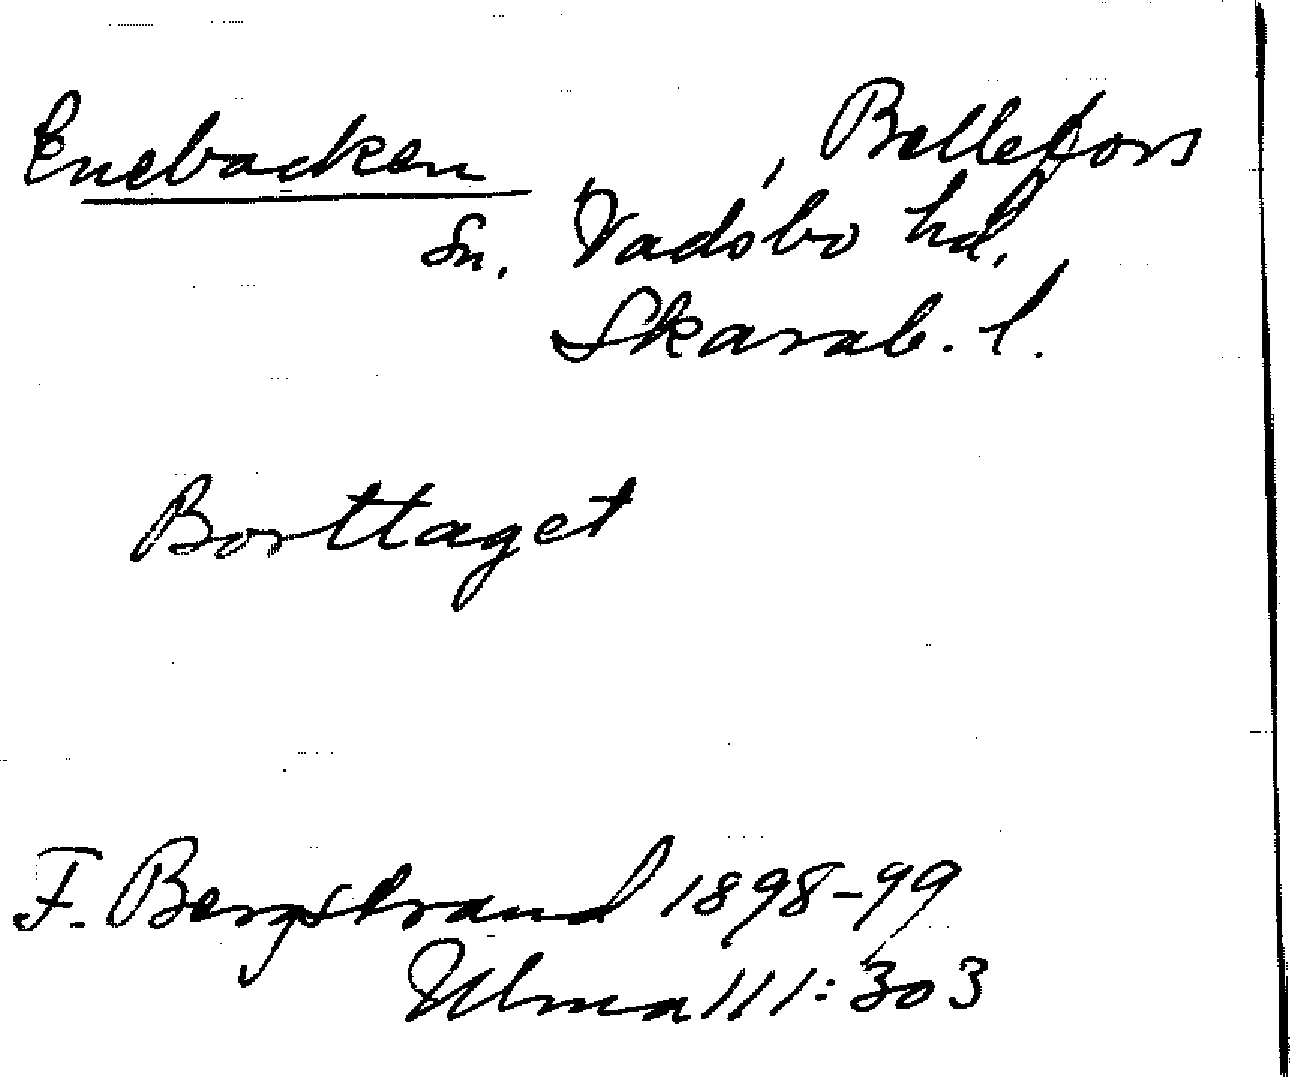 Enebacken, Bellefors
Sn. Vadsbo hd.
Skarab. l.
Borttaget
F. Bergstrand 1898-99
Ulma 111:303